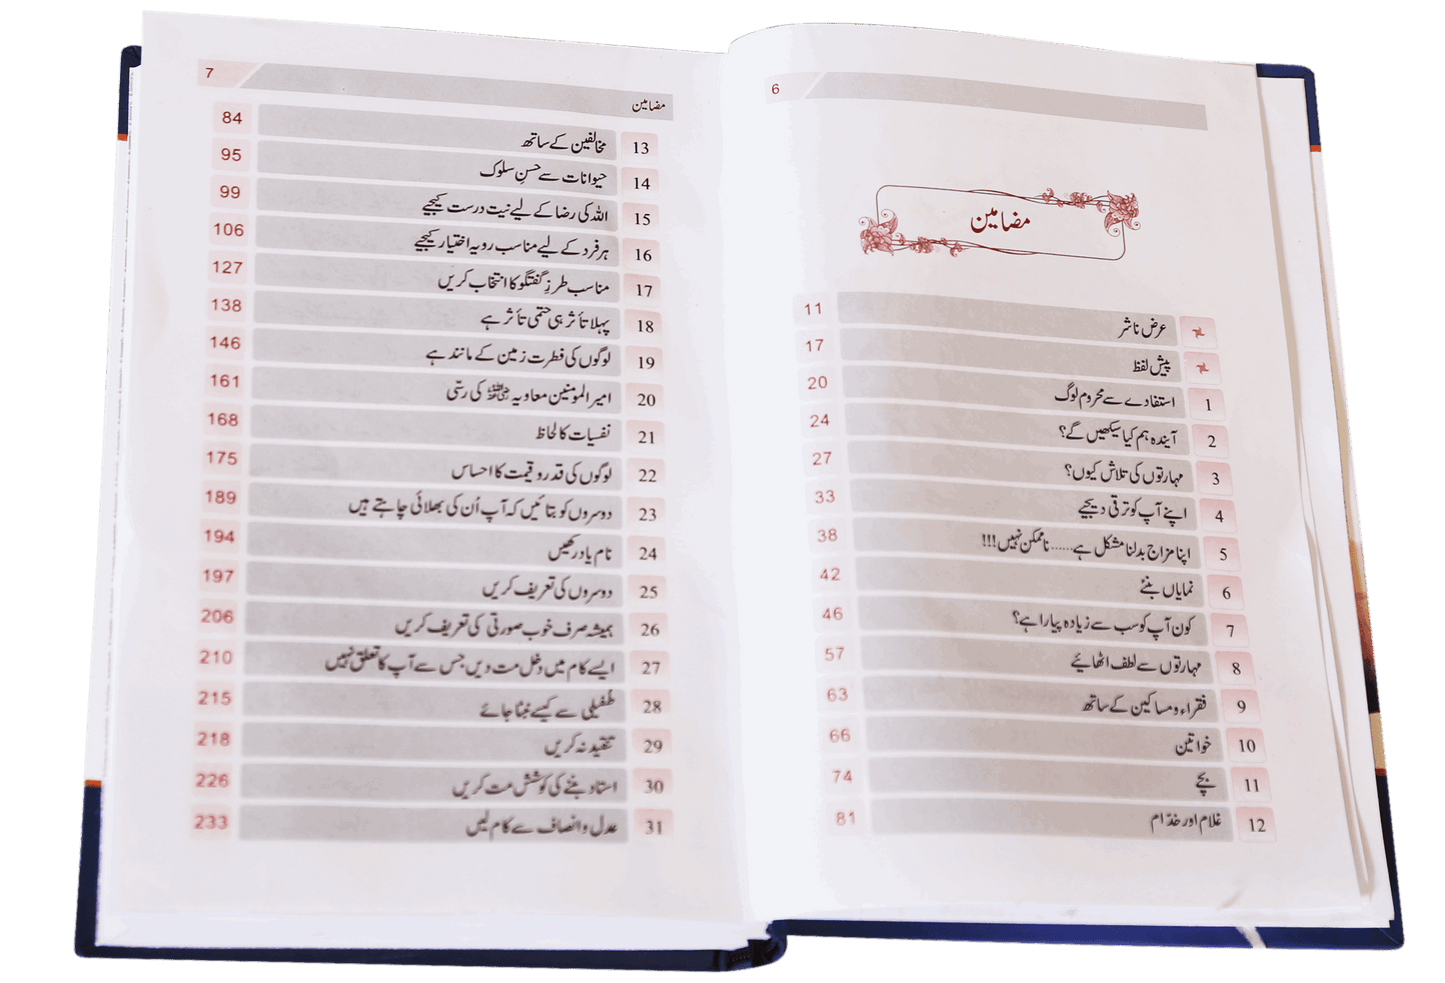 6
مضامین
عرض ناشر 11
پیش لفظ 17
1 استفادے سے محروم لوگ 20
2 آیندہ ہم کیا سیکھیں گے؟ 24
3 مہارتوں کی تلاش کیوں؟ 27
4 اپنے آپ کو ترقی دیجیے 33
5 اپنا مزاج بدلنا مشکل ہے...... ناممکن نہیں!!! 38
6 نمایاں بنئے 42
7 کون آپ کو سب سے زیادہ پیارا ہے؟ 46
8 مہارتوں سے لطف اٹھائیے 57
9 فقراء و مساکین کے ساتھ 63
10 خواتین 66
11 بچے 74
12 غلام اور خدّام 81
7
مضامین
13 مخالفین کے ساتھ 84
14 حیوانات سے حسنِ سلوک 95
15 اللہ کی رضا کے لیے نیت درست کیجیے 99
16 ہر فرد کے لیے مناسب رویہ اختیار کیجیے 106
17 مناسب طرزِ گفتگو کا انتخاب کریں 127
18 پہلا تأثر ہی حتمی تأثر ہے 138
19 لوگوں کی فطرت زمین کے مانند ہے 146
20 امیر المؤمنین معاویہ رضی اللہ عنہ کی رسّی 161
21 نفسیات کا لحاظ 168
22 لوگوں کی قدر و قیمت کا احساس 175
23 دوسروں کو بتائیں کہ آپ اُن کی بھلائی چاہتے ہیں 189
24 نام یاد رکھیں 194
25 دوسروں کی تعریف کریں 197
26 ہمیشہ صرف خوب صورتی کی تعریف کریں 206
27 ایسے کام میں دخل مت دیں جس سے آپ کا تعلق نہیں 210
28 طُفیلی سے کیسے نبٹا جائے 215
29 تنقید نہ کریں 218
30 استاد بننے کی کوشش مت کریں 226
31 عدل و انصاف سے کام لیں 233